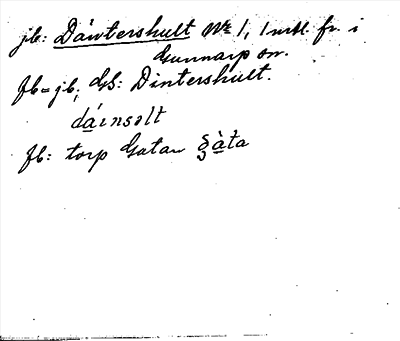 jb: Däntershult No 1, 1 mtl. fr. i
Gunnarp sn.
fb = jb; GS: Dintershult.
dáɪnsəlt
fb: torp Gatan gàta